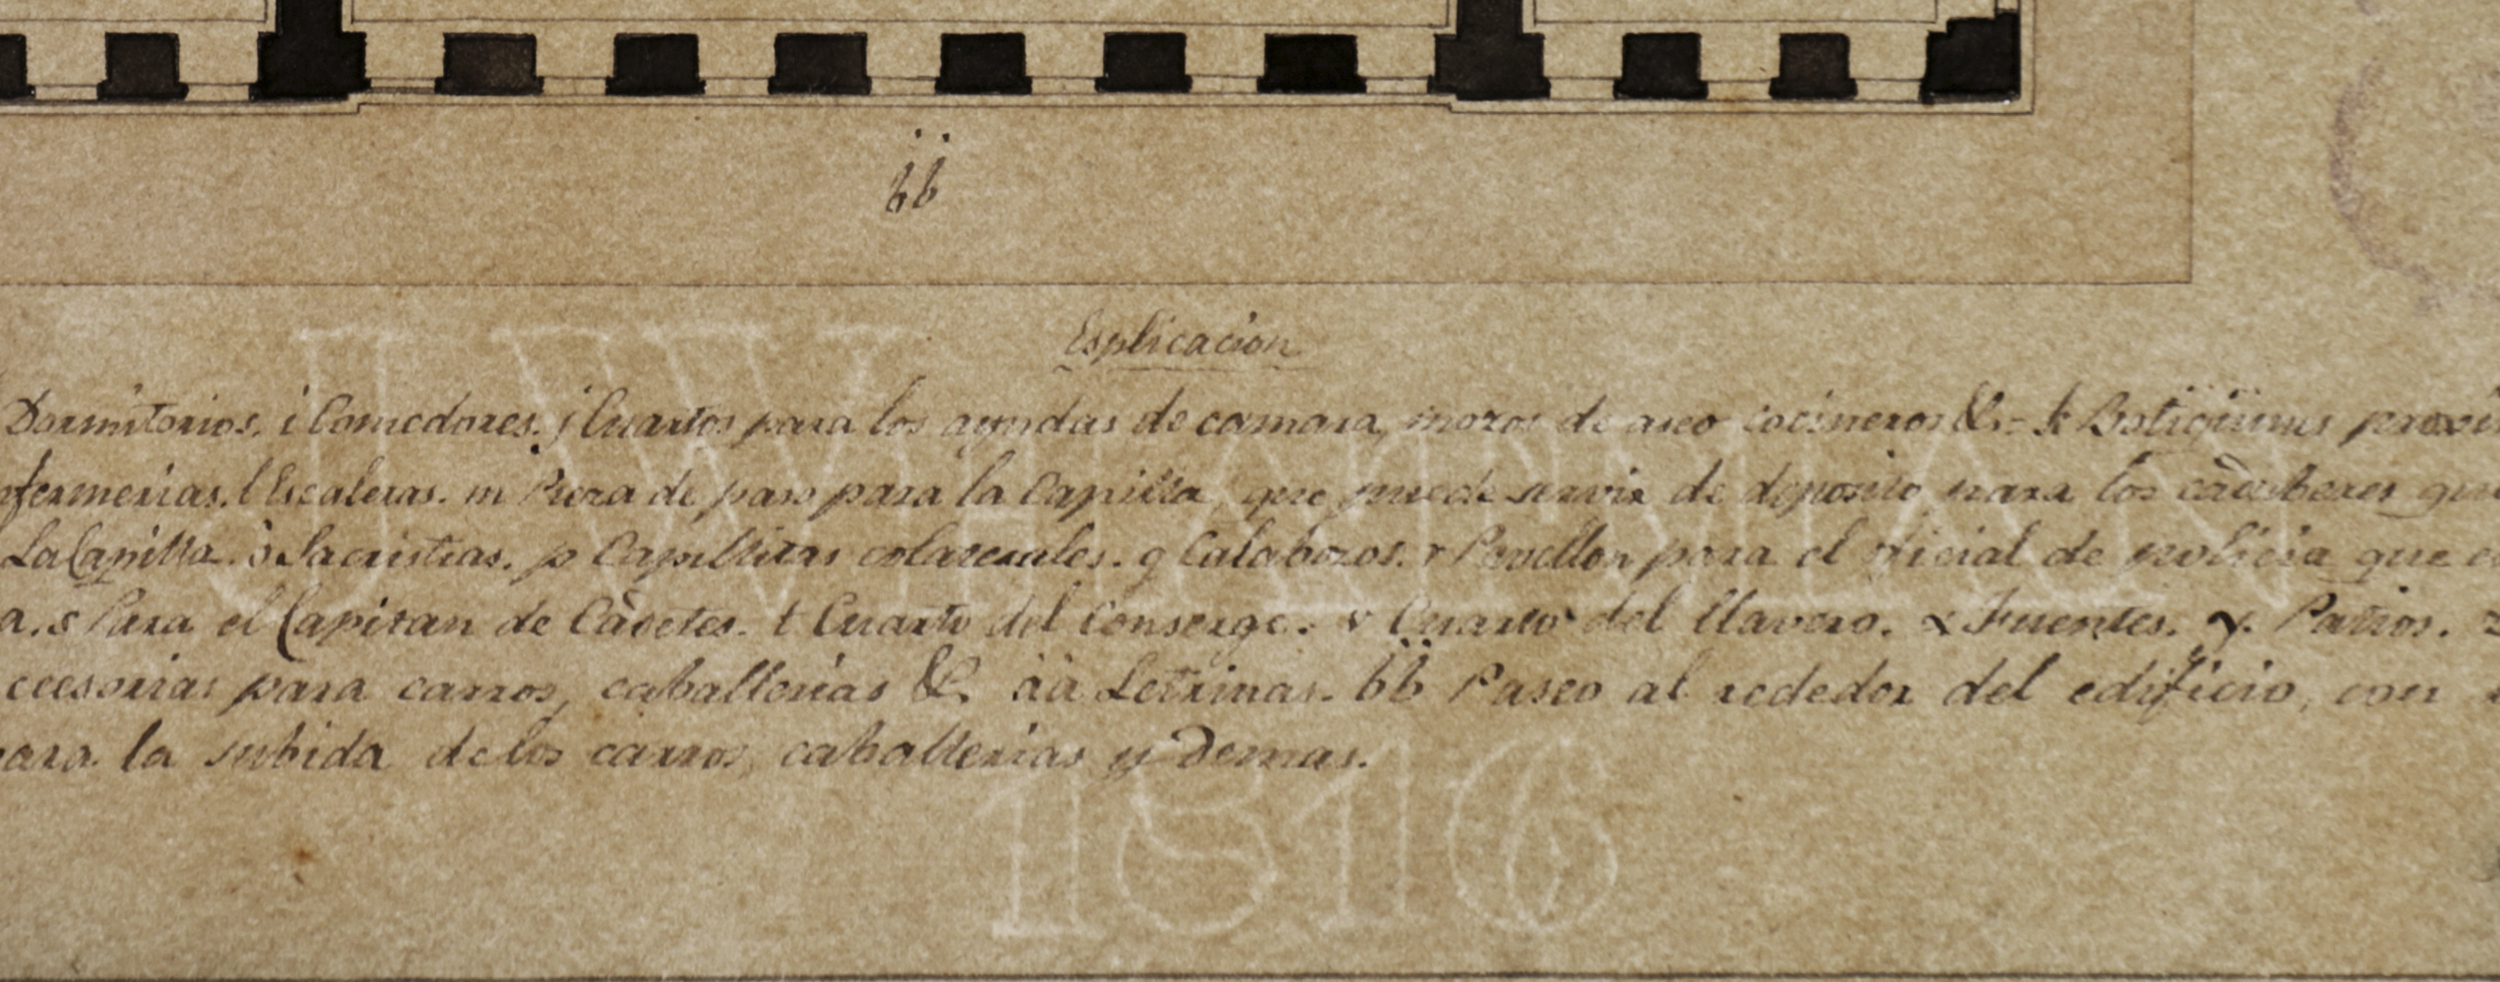 bb
Esplicacion
Dormitorios. i Comedores. j Cuartos para los ayudas de camara, mozos de aseo cocineros &c = k Botiquines
nfermerias. l Escaleras. m Pieza de paso para la Capilla, que puede servir de deposito para los cadaberes que
La Capilla. o Sacristias. p Capillitas colaterales. q Calabozos. r Pavellon para el oficial de policia que
a. s Para el Capitan de Cadetes. t Cuarto del Conserge. v Cuarto del llavero. x Fuentes. y. Patios. z
ccesorias para carros, caballerias &c. aa Letrinas. bb Paseo al rededor del edificio, con
para la subida de los carros, caballerias y demas.
J WHATMAN
1816